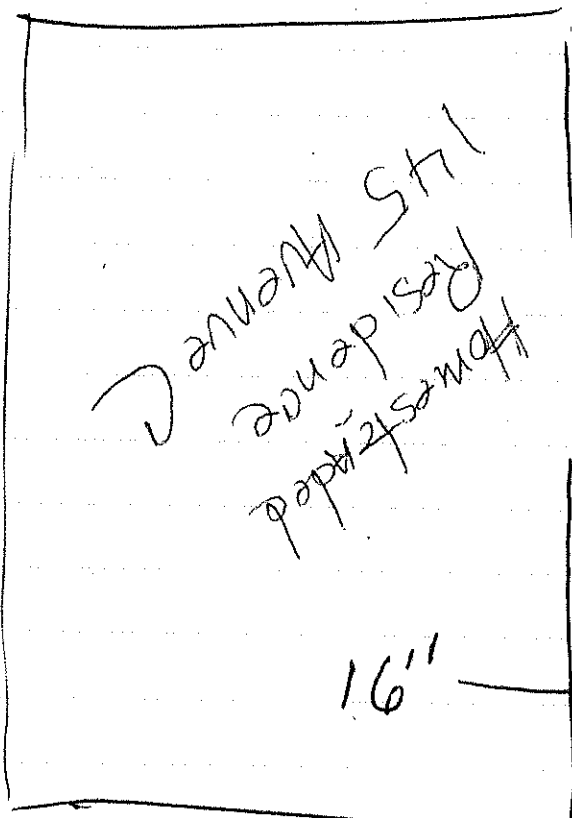 Homesteaded
Residence
145 Avenue C
16"